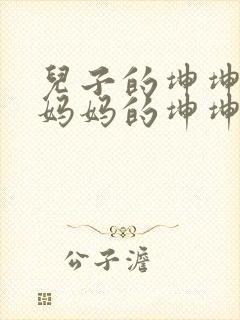 兒子的坤坤
妈妈的坤坤
公子澹